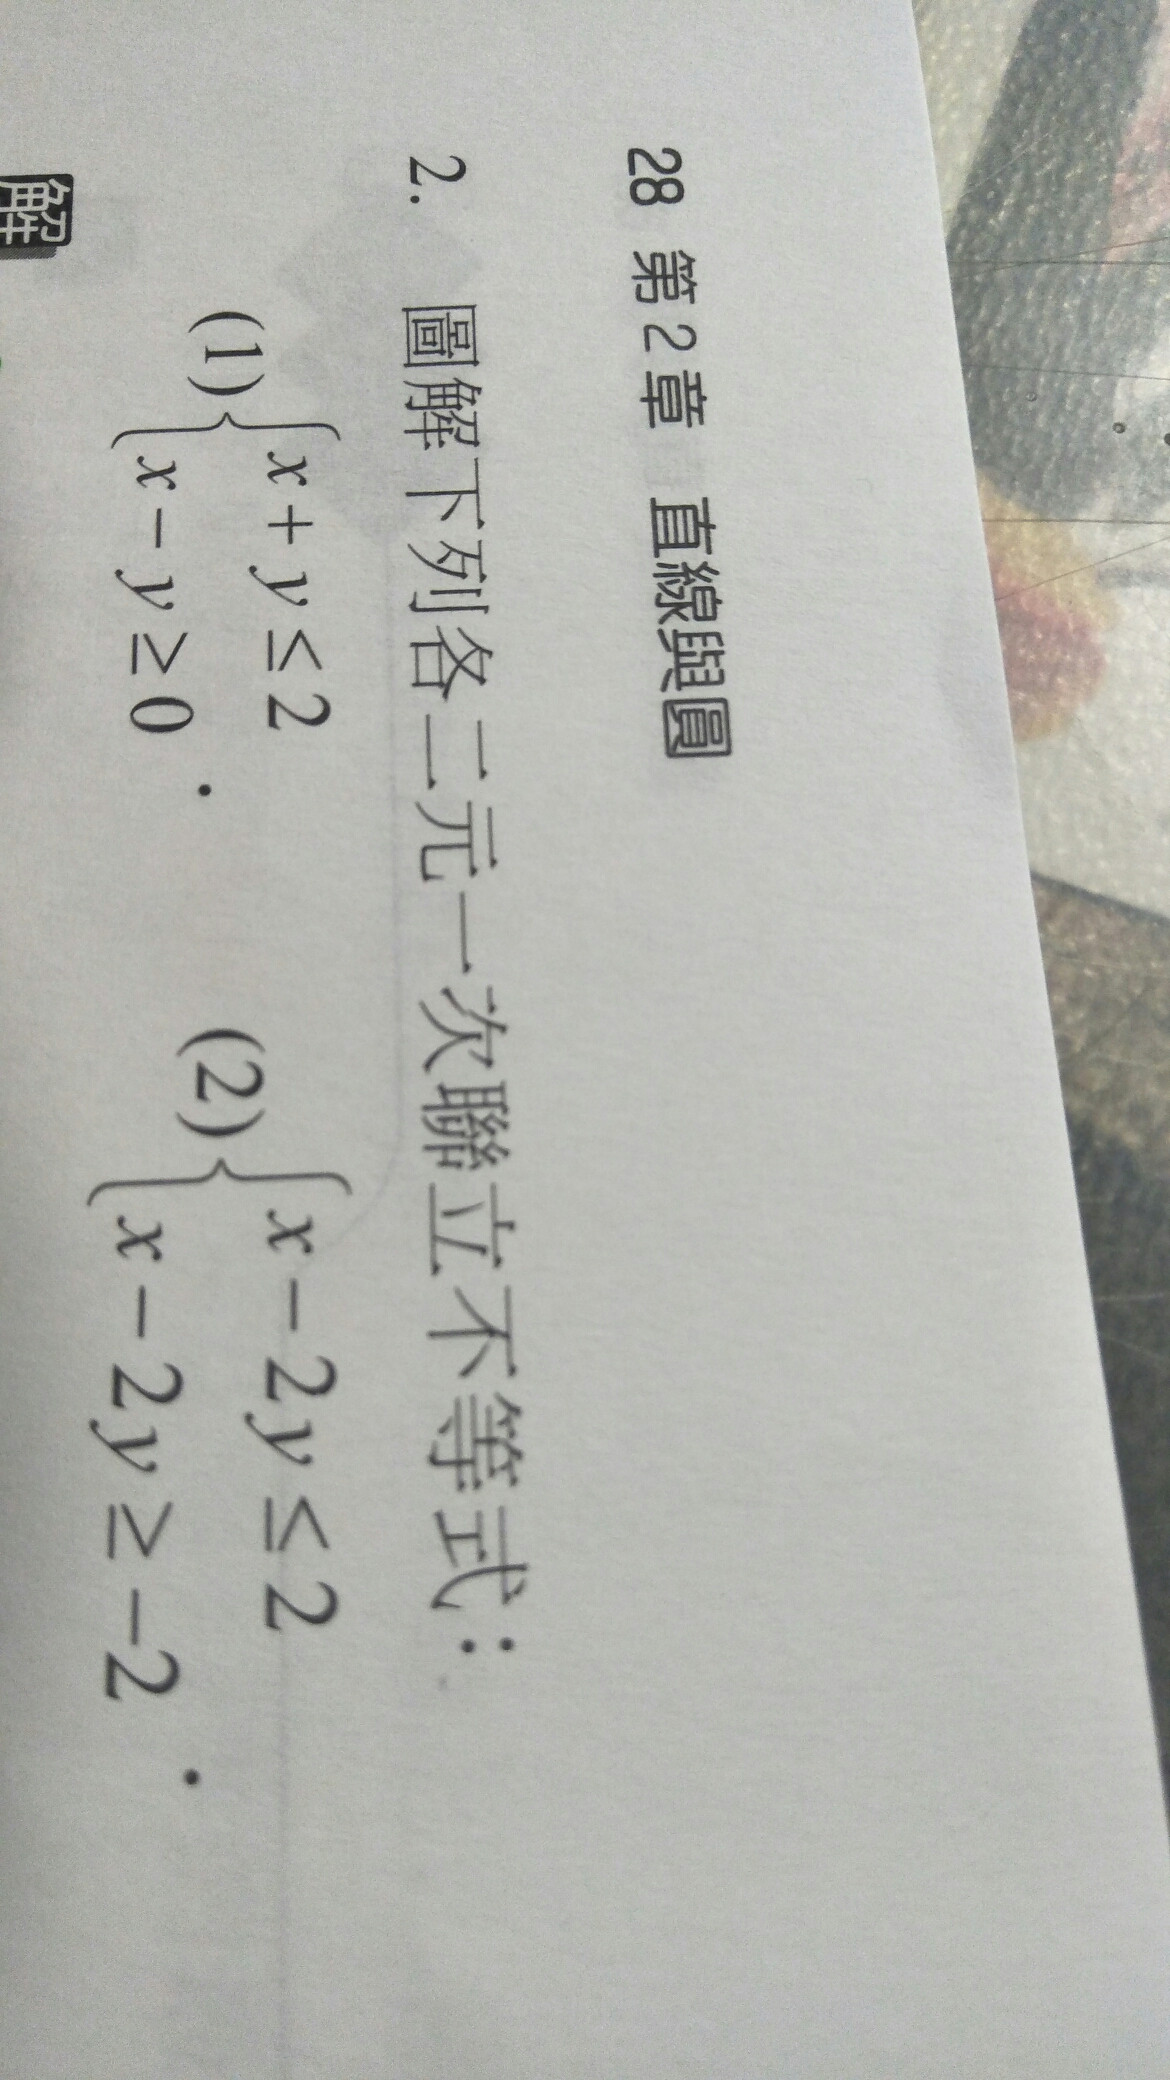 28 第2章 直線與圓
2. 圖解下列各二元一次聯立不等式：
(1){x+y≤2 (2){x−2y≤2
x−y≥0 . x−2y≥−2 .
解